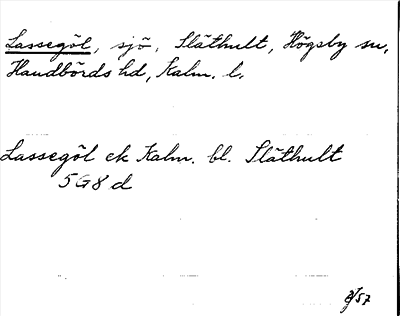 Lassegöl, sjö, Släthult, Högsby sn,
Handbörds hd, Kalm. l.
Lassegöl ek Kalm. bl. Släthult
5G8d
57